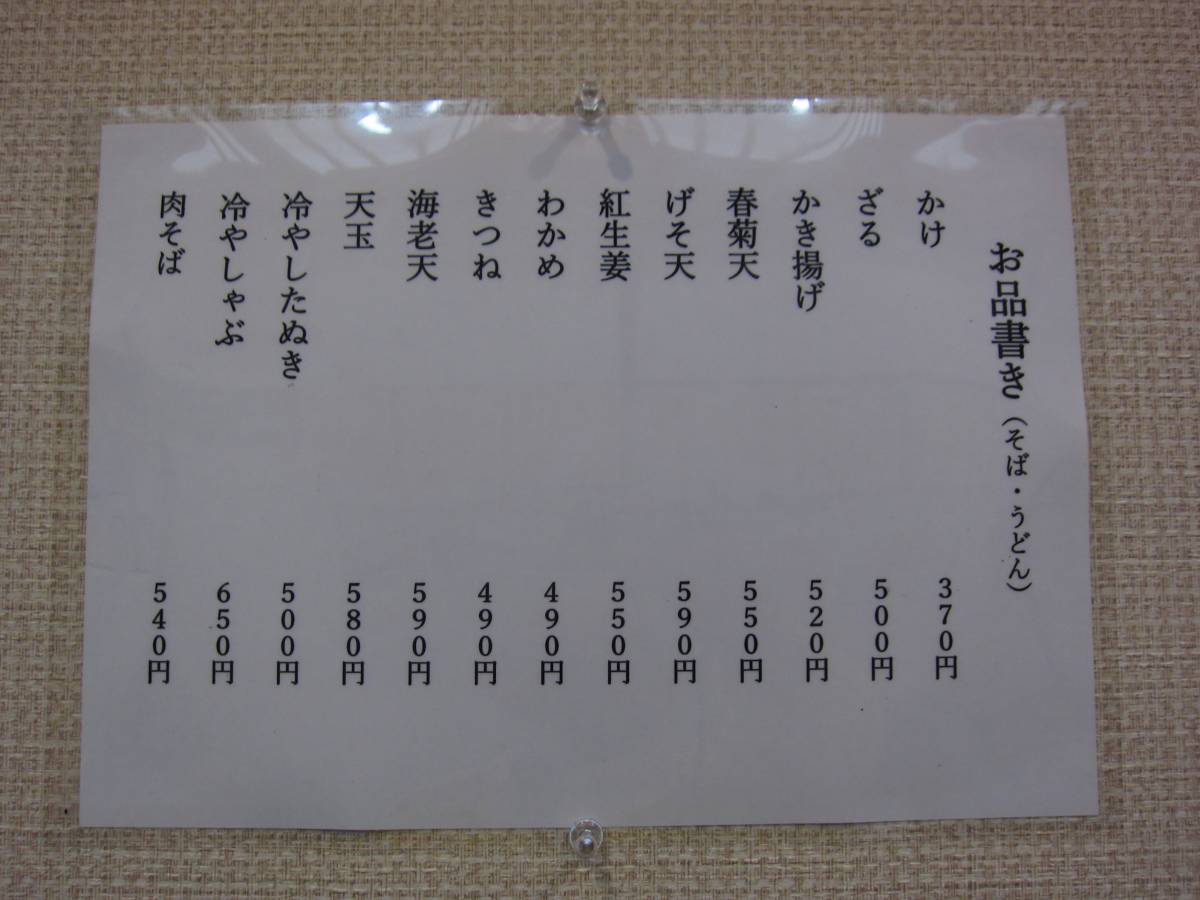 お品書き（そば・うどん）
かけ 370円
ざる 500円
かき揚げ 520円
春菊天 550円
げそ天 590円
紅生姜 550円
わかめ 490円
きつね 490円
海老天 590円
天玉 580円
冷やしたぬき 500円
冷やしゃぶ 650円
肉そば 540円